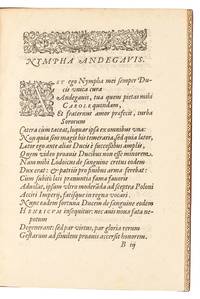 NYMPHA ANDEGAVIS.
AST ego Nympha mei semper Du-
cis vnica cura
Andegauis, tua quem pietas mihi
CAROLE quondam,
Et fraternus amor præfecit, turba
Sororum
Cætera cùm taceat, loquar ipsa ex omnibus vna:
Non quòd sim longis his itineraria, sed quia later,
Later ego ante alias Ducis successibus amplis,
Quem video proauis Ducibus non esse minorem.
Nam mihi Lodoicus de sanguine cretus eodem
Dux erat: & patriis pro finibus arma ferebat:
Cùm subitò læti prænuntia fama fauoris
Aduolat, ipsum vltro moderãda ad sceptra Poloni
Acciri Imperij, fasciúsque in regna vocari.
Nunc eadem fortuna Ducem de sanguine eodem
HENRICVM insequitur: nec auis nota fata ne-
potum
Degenerant: sed par virtus, par gloria rerum
Gestarum ad similem proauis accersit honorem.
B iij